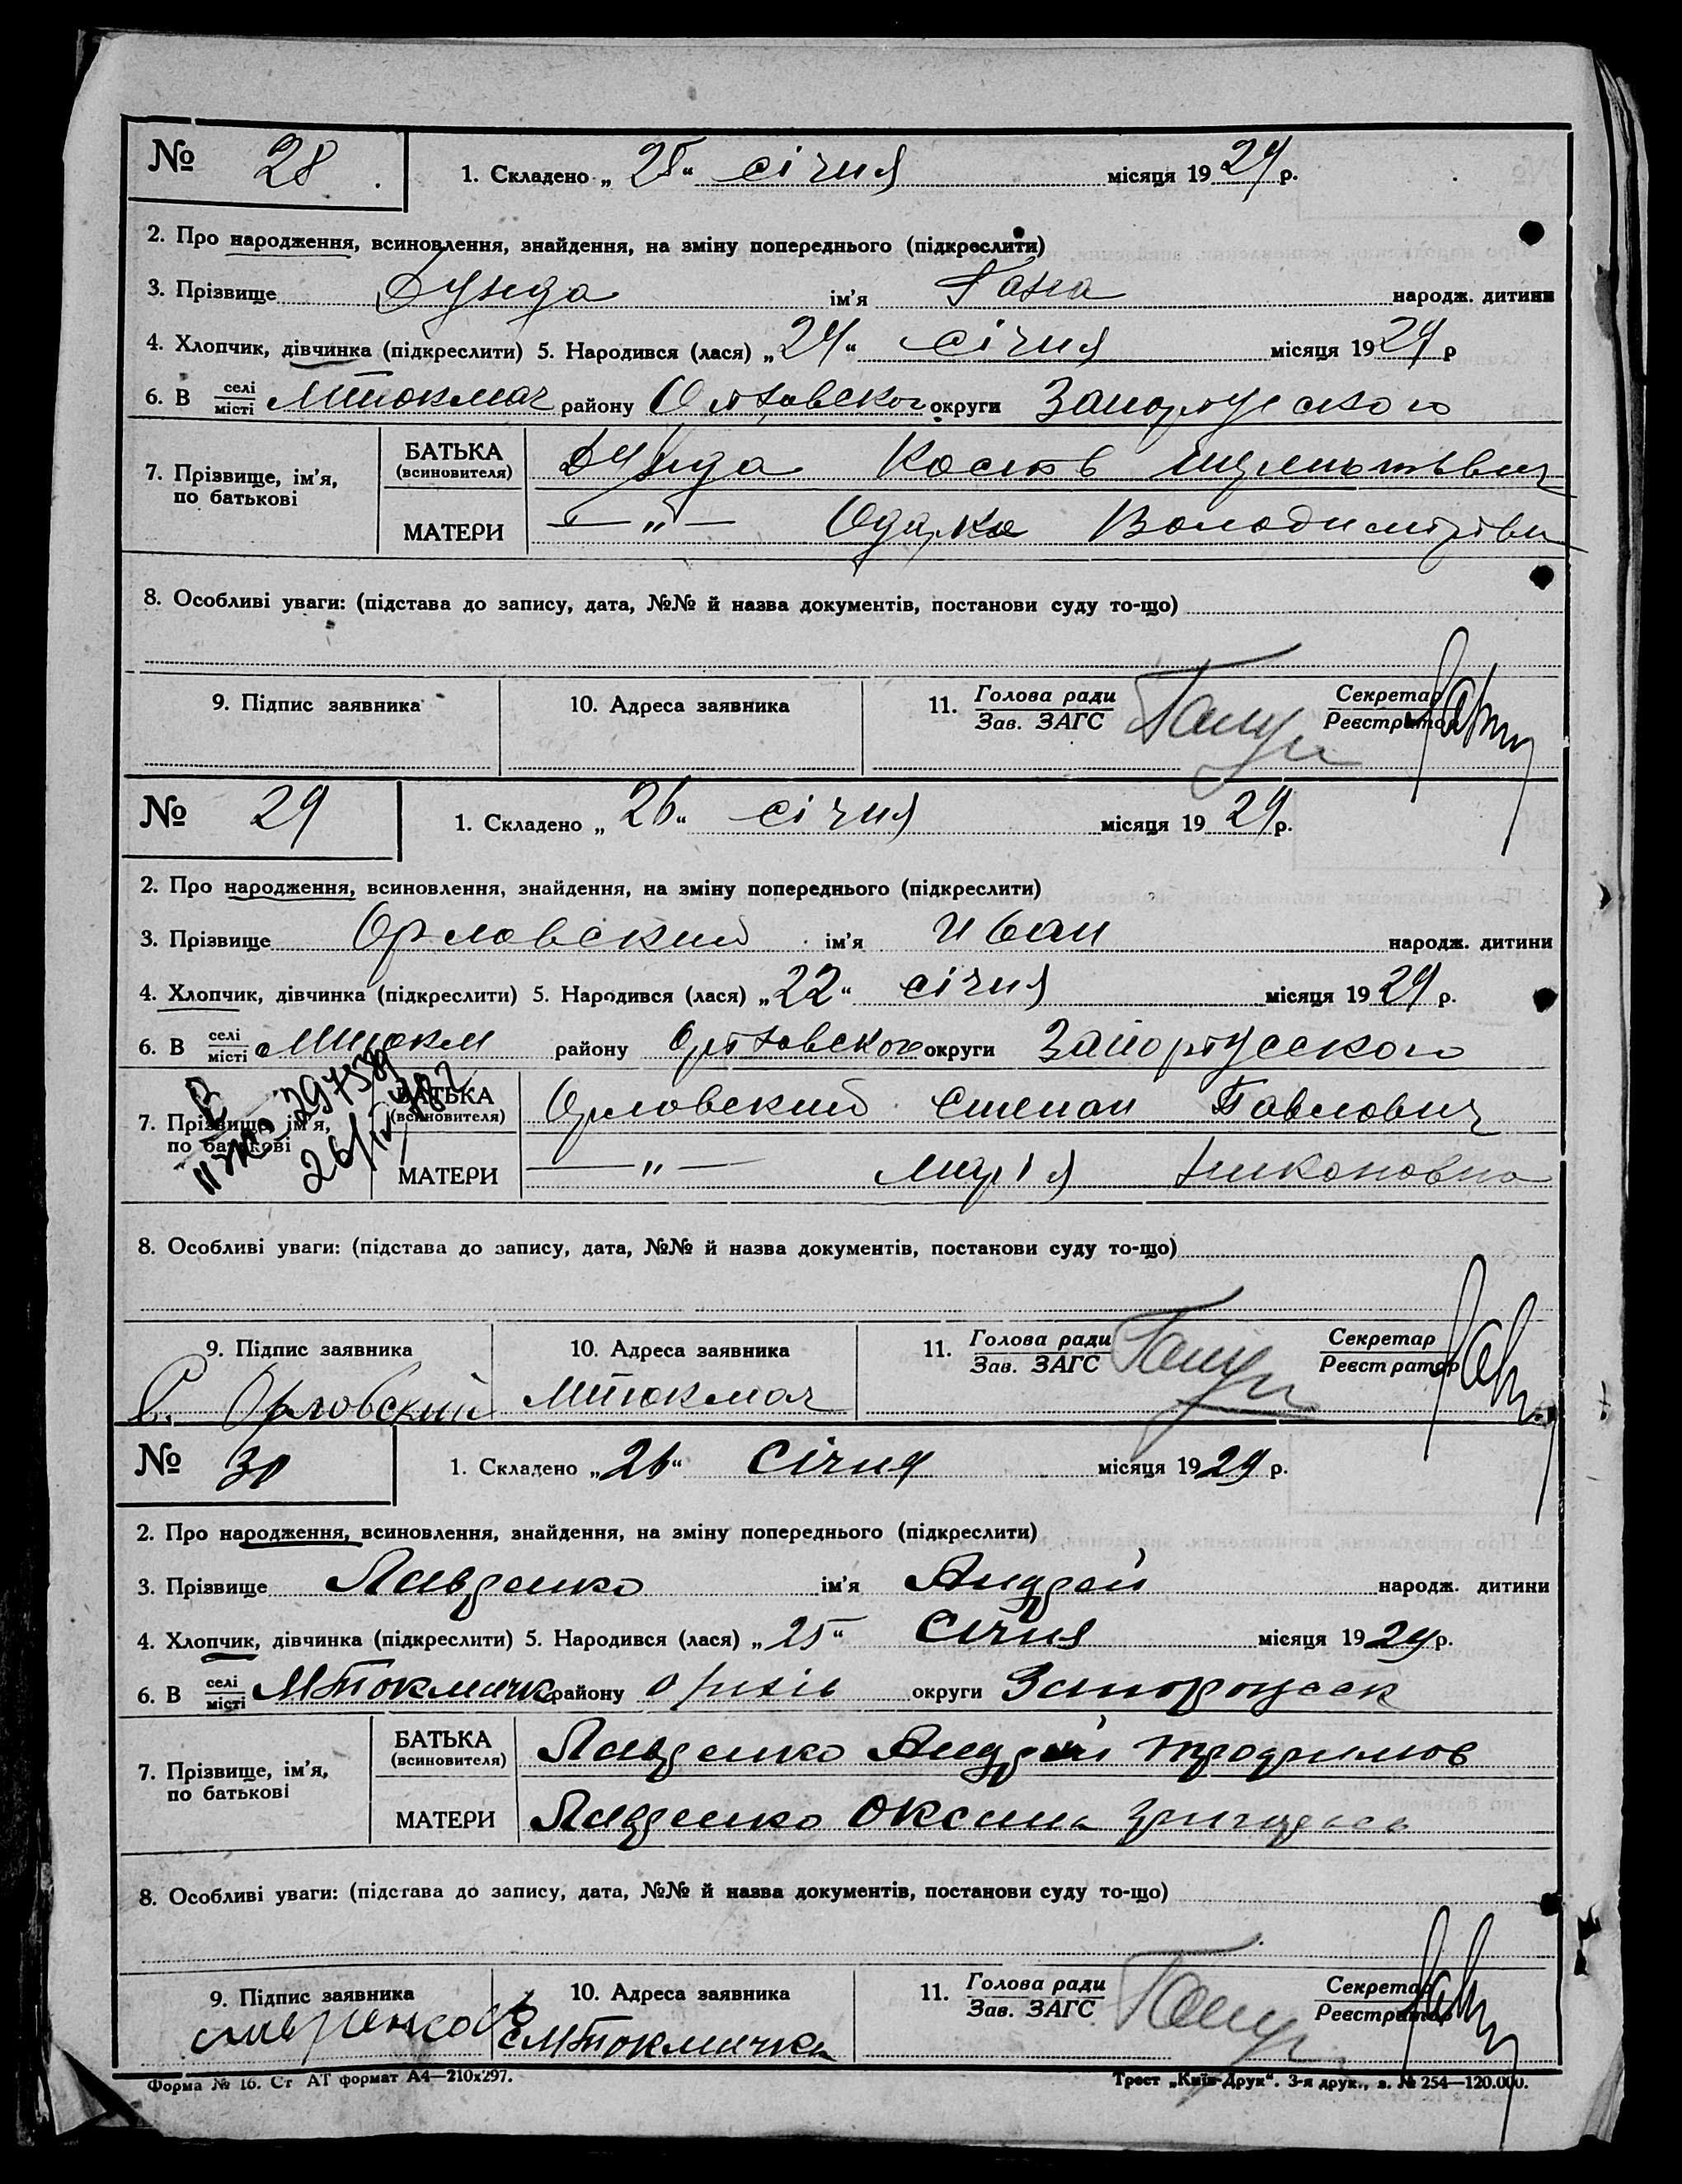 № 28 1. Складено „25“ січня місяця 1929 р.
2. Про народження, всиновлення, знайдення, на зміну попереднього (підкреслити)
3. Прізвище ім'я Гана народж. дитини
4. Хлопчик, дівчинка (підкреслити) 5. Народився (лася) „24“ січня місяця 1929 р
6. В селі/місті МТокмач району Оріховского округи
7. Прізвище, ім'я, по батькові
БАТЬКА (всиновителя) Кость
МАТЕРИ —„— Одарка
8. Особливі уваги: (підстава до запису, дата, №№ й назва документів, постанови суду то-що)
9. Підпис заявника 10. Адреса заявника 11. Голова ради/Зав. ЗАГС Секретар/Реєстратор
№ 29 1. Складено „26“ січня місяця 1929 р.
2. Про народження, всиновлення, знайдення, на зміну попереднього (підкреслити)
3. Прізвище Орловский ім'я Иван народж. дитини
4. Хлопчик, дівчинка (підкреслити) 5. Народився (лася) „22“ січня місяця 1929 р.
6. В селі/місті МТокм району Оріховского округи
7. Прізвище, ім'я, по батькові
БАТЬКА (всиновителя) Орловский Степан Павлович
МАТЕРИ —„— Марія Никоновна
8. Особливі уваги: (підстава до запису, дата, №№ й назва документів, постанови суду то-що)
9. Підпис заявника 10. Адреса заявника 11. Голова ради/Зав. ЗАГС Секретар/Реєстратор
С. Орловский МТокмач
№ 30 1. Складено „26“ січня місяця 1929 р.
2. Про народження, всиновлення, знайдення, на зміну попереднього (підкреслити)
3. Прізвище Лавренко ім'я Андрей народж. дитини
4. Хлопчик, дівчинка (підкреслити) 5. Народився (лася) „25“ січня місяця 1929 р.
6. В селі/місті МТокмачка району Оріхів округи
7. Прізвище, ім'я, по батькові
БАТЬКА (всиновителя) Лавренко Андрей Трофимов
МАТЕРИ Лавренко Оксана
8. Особливі уваги: (підстава до запису, дата, №№ й назва документів, постанови суду то-що)
9. Підпис заявника 10. Адреса заявника 11. Голова ради/Зав. ЗАГС Секретар/Реєстратор
МТокмачка
Форма № 16. Ст АТ формат А4—210х297. Трест „Київ-Друк“. 3-я друк., з. № 254—120.000.